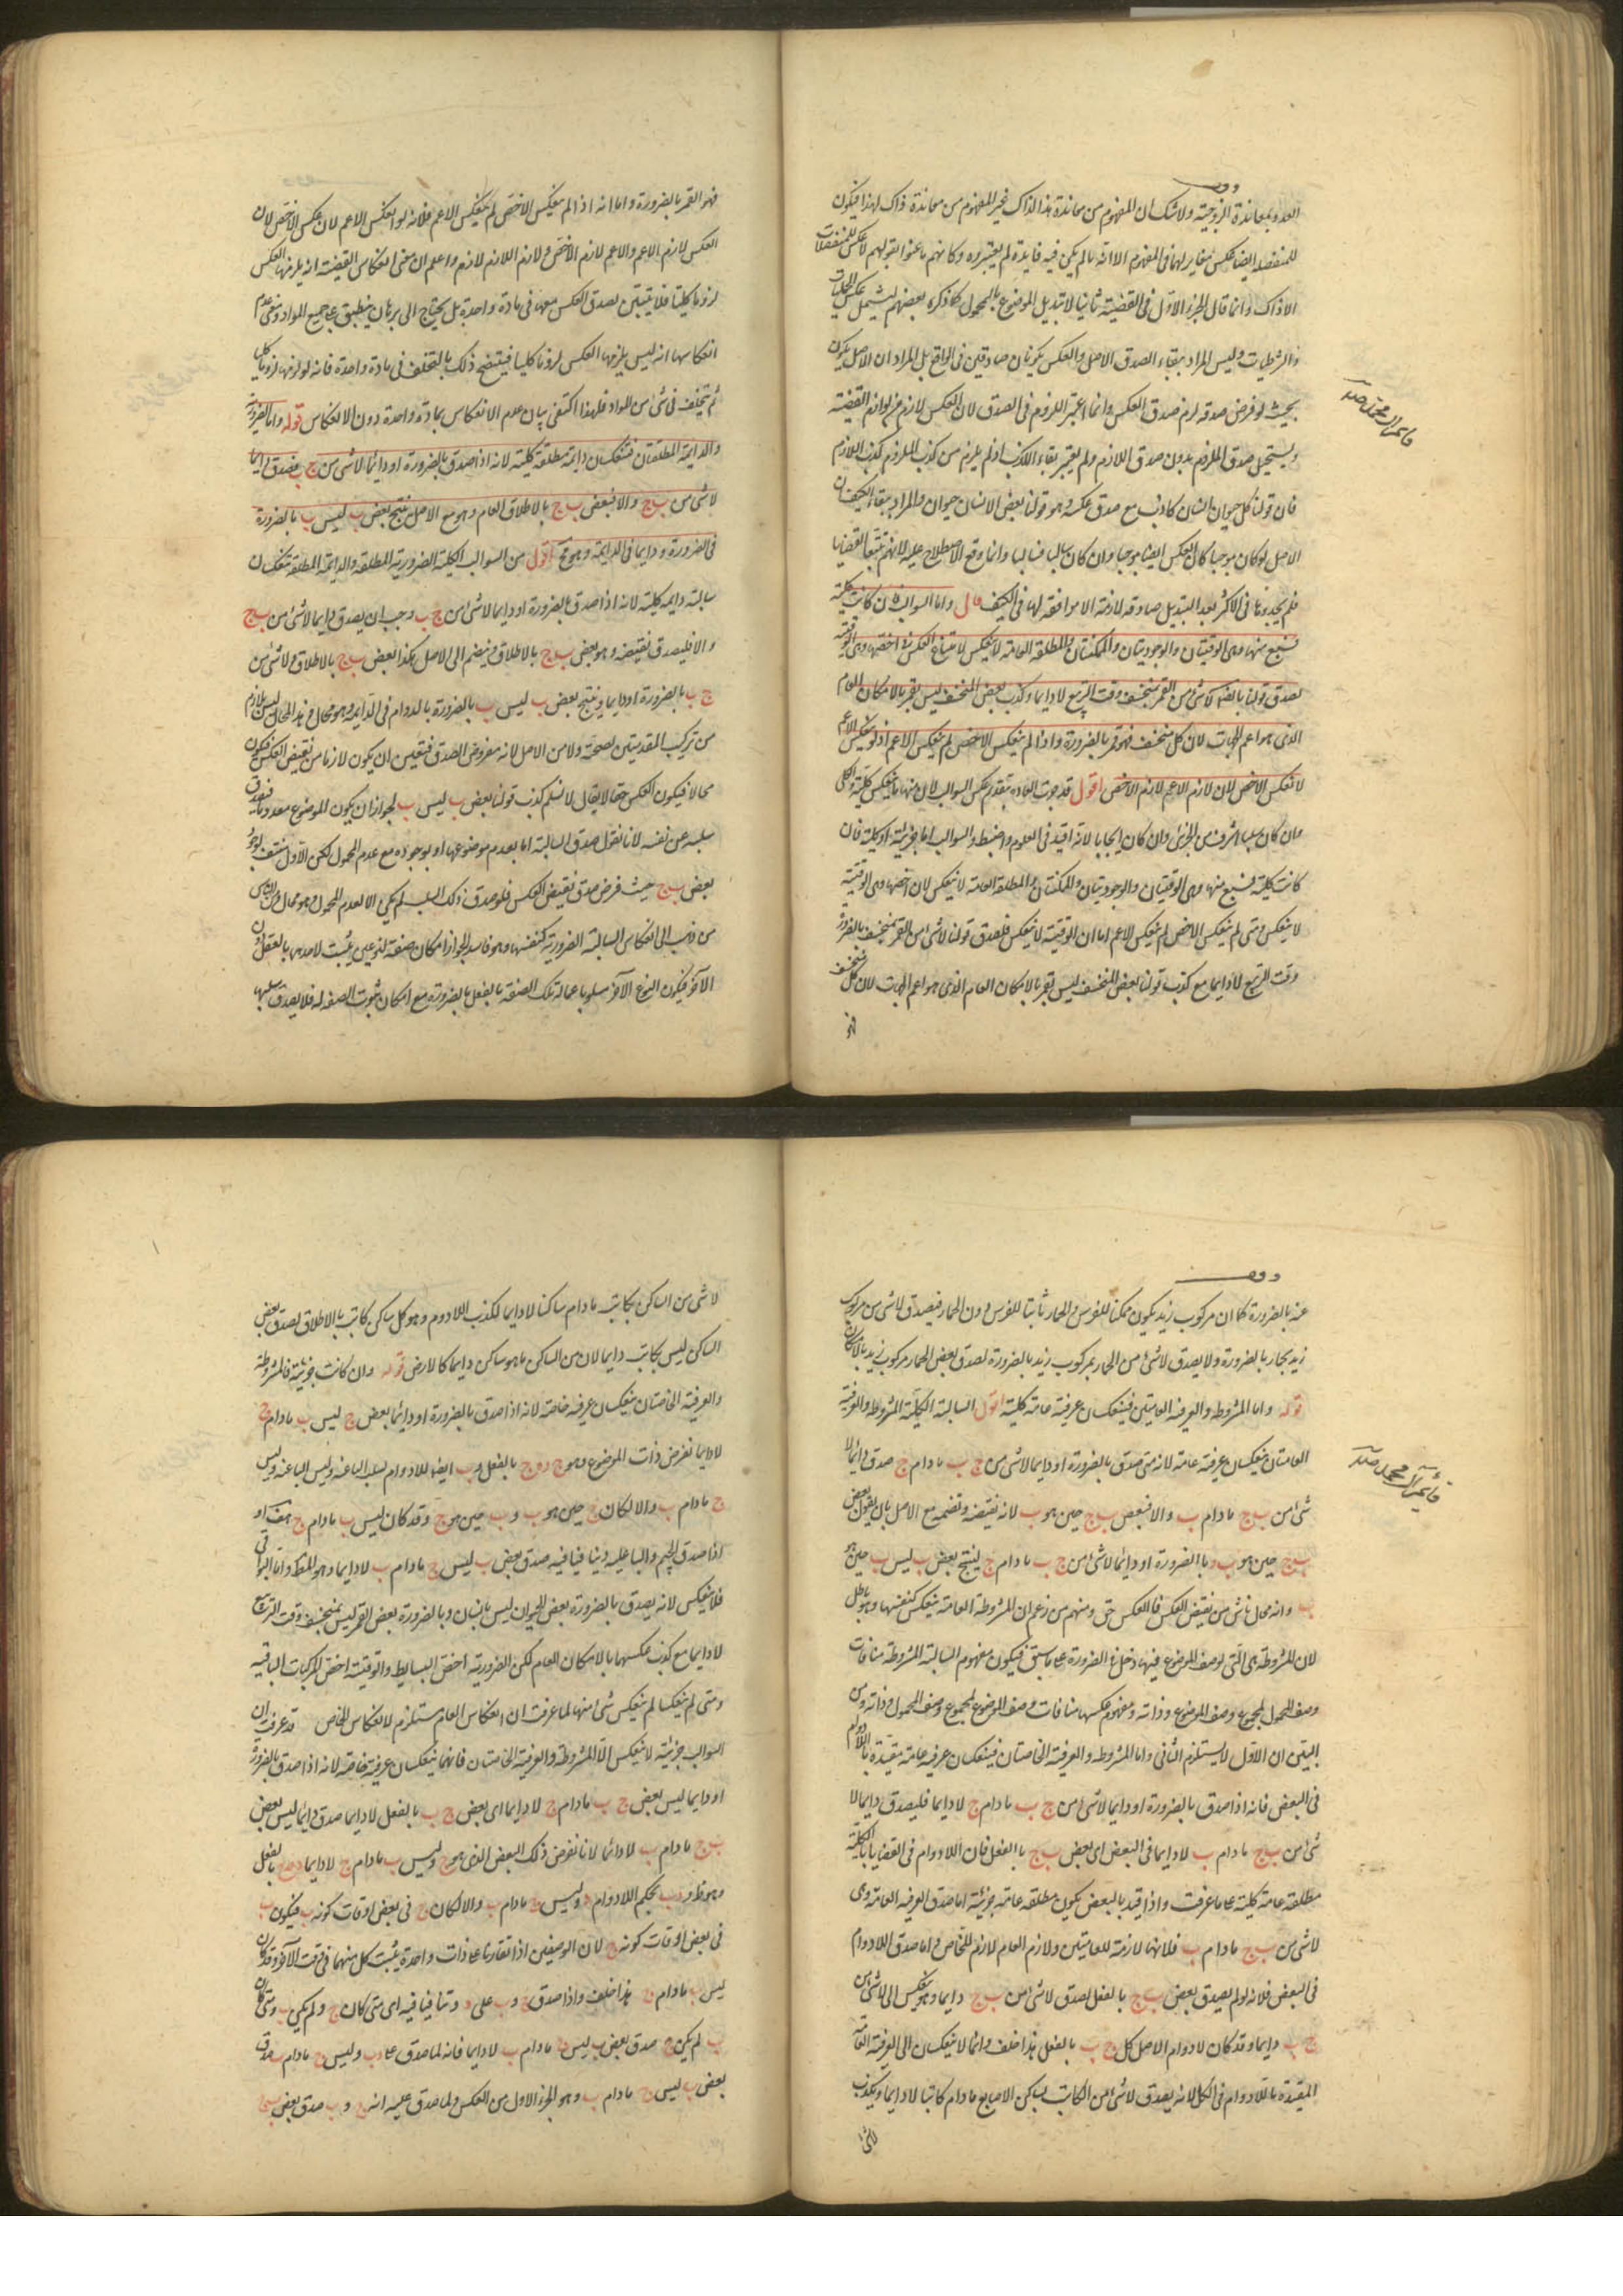 العدد بمعاندة الزوجية ولا شك ان المفهوم من معاندة هذا لذاك غير المفهوم من معاندة ذاك لهذا فيكون
للمنفصلة ايضا عكس مغاير لها في المفهوم الا انه لما لم يكن فيه فايدة لم يعتبروه وكانهم ما عنوا بقولهم لا عكس للمنفصلات
الا ذاك وانما قال الجزء الاول في القضية ثانيا لا تبديل الموضوع بالمحمول كما ذكره بعضهم ليشمل عكس الحمليات
والشرطيات وليس المراد ببقاء الصدق الاصل والعكس يكونان صادقين في الواقع بل المراد ان الاصل يكون
بحيث لو فرض صدقه لزم صدق العكس وانما اعتبر اللزوم في الصدق لان العكس لازم من لوازم القضية
ويستحيل صدق الملزوم بدون صدق اللازم ولم يعتبر بقاء الكذب اذ لم يلزم من كذب الملزوم كذب اللازم
فان قولنا كل حيوان انسان كاذب مع صدق عكسه وهو قولنا بعض الانسان حيوان والمراد ببقاء الكيف ان
الاصل لو كان موجبا كان العكس ايضا موجبا وان كان سالبا فسالبا وانما وقع الاصطلاح عليه لانهم تتبعوا القضايا
فلم يجدوها في الاكثر بعد التبديل صادقة لازمة الا موافقة لها في الكيف قال واما السوالب فان كانت كلية
فسبع منها وهي الوقتيتان والوجوديتان والممكنتان والمطلقة العامة لا ينعكس لامتناع العكس في اخصها وهي الوقتية
لصدق قولنا بالضرورة لا شئ من القمر بمنخسف وقت التربيع لا دايما وكذب بعض المنخسف ليس بقمر بالامكان العام
الذي هو اعم الجهات لان كل منخسف فهو قمر بالضرورة واذا لم ينعكس الاخص لم ينعكس الاعم اذ لو انعكس الاعم
لانعكس الاخص لان لازم الاعم لازم الاخص اقول قد جرت العادة بتقديم عكس السوالب لان منها ما ينعكس كلية والكلي
وان كان سلبا اشرف من الجزئي وان كان ايجابا لانه افيد في العلوم واضبط والسوالب اما جزئية او كلية فان
كانت كلية فسبع منها وهي الوقتيتان والوجوديتان والممكنتان والمطلقة العامة لا ينعكس لان اخصها وهي الوقتية
لا ينعكس ومتى لم ينعكس الاخص لم ينعكس الاعم اما ان الوقتية لا ينعكس فلصدق قولنا لا شئ من القمر بمنخسف بالضرورة
وقت التربيع لا دايما مع كذب قولنا بعض المنخسف ليس بقمر بالامكان العام الذي هو اعم الجهات لان كل منخسف
فهو
فهو القمر بالضرورة واما انه اذا لم ينعكس الاخص لم ينعكس الاعم فلانه لو انعكس الاعم لانعكس الاخص لان
العكس لازم الاعم والاعم لازم الاخص ولازم اللازم لازم واعلم ان معنى انعكاس القضية انه يلزمها العكس
لزوما كليا فلا يتبين لصدق العكس معها في مادة واحدة بل يحتاج الى برهان ينطبق على جميع المواد ومعنى عدم
انعكاسها انه ليس يلزمها العكس لزوما كليا فيتضح ذلك بالتخلف في مادة واحدة فانه لو لزمها لزوما كليا
لم يتخلف في شئ من المواد فلهذا اكتفى ببيان عدم الانعكاس بمادة واحدة دون الانعكاس قوله واما الضرورية
والدايمة المطلقتان فتنعكسان دايمة مطلقة كلية لانه اذا صدق بالضرورة او دائما لا شئ من ج ب فصدق دايما
لا شئ من ب ج والا فبعض ب ج بالاطلاق العام وهو مع الاصل ينتج بعض ب ليس ب بالضرورة
في الضرورة ودايما في الدايمة وهو مح اقول من السوالب الكلية الضرورية المطلقة والدايمة المطلقة تنعكسان
سالبة دايمة كلية لانه اذا صدق بالضرورة او دايما لا شئ من ج ب وجب ان يصدق دايما لا شئ من ب ج
والا فليصدق نقيضه وهو بعض ب ج بالاطلاق وينضم الى الاصل هكذا بعض ب ج بالاطلاق ولا شئ من
ج ب بالضرورة او دايما وينتج بعض ب ليس ب بالضرورة بالدوام في الدايمة وهو محال وهذا المحال ليس بلازم
من تركيب المقدمتين لصحته ولا من الاصل لانه مفروض الصدق فتعين ان يكون لازما من نقيض العكس فيكون
محالا فيكون العكس حقا لا يقال لا نسلم كذب قولنا بعض ب ليس ب لجواز ان يكون الموضوع معدوما فيصدق
سلبه عن نفسه لانا نقول صدق السالبة اما بعدم موضوعها او بوجوده مع عدم المحمول لكن الاول منتف لوجود
بعض ب ج حيث فرض صدق نقيض العكس فلو صدق ذلك السلب لم يكن الا لعدم المحمول وهو محال ومن الناس
من ذهب الى انعكاس السالبة الضرورية كنفسها وهو فاسد لجواز امكان صفة لنوعين يثبت لاحدهما بالفعل دون
الآخر فيكون النوع الآخر مسلوبا عما له تلك الصفة بالفعل بالضرورة مع امكان ثبوت الصفة له فلا يصدق سلبها
عنه بالضرورة كما ان مركوب زيد يكون ممكنا للفرس والحمار ثابتا للفرس دون الحمار فيصدق لا شئ من مركوب
زيد بحمار بالضرورة ولا يصدق لا شئ من الحمار بمركوب زيد بالضرورة لصدق بعض الحمار مركوب زيد بالامكان
قوله واما المشروطة والعرفية العامتين فينعكسان عرفية عامة كلية اقول السالبة الكلية المشروطة والعرفية
العامتان ينعكسان عرفية عامة لانه متى صدق بالضرورة او دايما لا شئ من ج ب ما دام ج صدق دائما لا
شئ من ب ج ما دام ب والا فبعض ب ج حين هو ب لانه نقيضه ونضمه مع الاصل بان يقول بعض
ب ج حين هو ب وبالضرورة او دائما لا شئ من ج ب ما دام ج لينتج بعض ب ليس ب حين هو
ب وانه محال ناش من نقيض العكس فالعكس حق ومنهم من زعم ان المشروطة العامة ينعكس كنفسها وهو باطل
لان المشروطة هي التي لوصف الموضوع فيها دخل في الضرورة على ما سبق فيكون مفهوم السالبة المشروطة منافات
وصف المحمول لمجموع وصف الموضوع وذاته ومفهوم عكسها منافات وصف الموضوع لمجموع وصف المحمول وذاته ومن
البين ان الاول لا يستلزم الثاني واما المشروطة والعرفية الخاصتان فينعكسان عرفية عامة مقيدة باللادوام
في البعض فانه اذا صدق بالضرورة او دايما لا شئ من ج ب ما دام ج لا دايما فليصدق دايما لا
شئ من ب ج ما دام ب لا دايما في البعض اي بعض ب ج بالفعل فان اللادوام في القضايا الكلية
مطلقة عامة كلية على ما عرفت واذا قيد بالبعض يكون مطلقة عامة جزئية اما صدق العرفية العامة وهي
لا شئ من ب ج ما دام ب فلانها لازمة للعامتين ولازم العام لازم للخاص واما صدق اللادوام
في البعض فلانه لو لم يصدق بعض ب ج بالفعل لصدق لا شئ من ب ج دايما وهو ينعكس الى لا شئ من
ج ب دايما وقد كان لا دوام الاصل كل ج ب بالفعل هذا خلف وانما لا ينعكسان الى العرفية العامة
المقيدة باللادوام في الكل لانه يصدق لا شئ من الكاتب بساكن الاصابع ما دام كاتبا لا دايما ويكذب
لا شئ
لا شئ من الساكن بكاتب ما دام ساكنا لا دايما لكذب اللادوام وهو كل ساكن كاتب بالاطلاق لصدق بعض
الساكن ليس بكاتب دايما لان من الساكن ما هو ساكن دايما كالارض قوله وان كانت جزئية فالمشروطة
والعرفية الخاصتان ينعكسان عرفية خاصة لانه اذا صدق بالضرورة او دائما بعض ج ليس ب ما دام ج
لا دايما نفرض ذات الموضوع وهو ج د فد ج بالفعل وب ايضا للادوام سلب الباء عنه وليس
ج ما دام ب والا لكان ج حين هو ب وب حين هو ج وقد كان ليس ب ما دام ج هف واذ
اذا صدق الجيم والبا عليه وتنافيا فيه صدق بعض ب ليس ج ما دام ب لا دايما وهو المط واما البواقي
فلا ينعكس لانه يصدق بالضرورة بعض الحيوان ليس بانسان وبالضرورة بعض القمر ليس بمنخسف وقت التربيع
لا دايما مع كذب عكسهما بالامكان العام لكن الضرورية اخص البسايط والوقتية اخص المركبات الباقية
ومتى لم ينعكسا لم ينعكس شئ منها لما عرفت ان انعكاس العام مستلزم لانعكاس الخاص قد عرفت ان
السوالب الجزئية لا ينعكس الا المشروطة والعرفية الخاصتان فانهما ينعكسان عرفية خاصة لانه اذا صدق بالضرورة
او دايما ليس بعض ج ب ما دام ج لا دايما اي بعض ج ب بالفعل لا دايما صدق دائما ليس بعض
ب ج ما دام ب لا دائما لانا نفرض ذلك البعض الذي هو ج وليس ب ما دام ج لا دايما د فد ج بالفعل
وهو ظ ود ب بحكم اللادوام وليس ج ما دام ب والا لكان ج في بعض اوقات كونه ب فيكون ب
في بعض اوقات كونه ج لان الوصفين اذا تقارنا على ذات واحدة يثبت كل منهما في وقت الآخر وقد كان
ليس ب ما دام ج هذا خلف واذا صدق ج وب على د وتنافيا فيه اي متى كان ج لم يكن ب ومتى كان
ب لم يكن ج صدق بعض ب ليس ج ما دام ب لا دايما فانه لما صدق على د ب وليس ج ما دام ب صدق
بعض ب ليس ج ما دام ب وهو الجزء الاول من العكس ولما صدق عليه انه ج وب صدق بعض ب ج